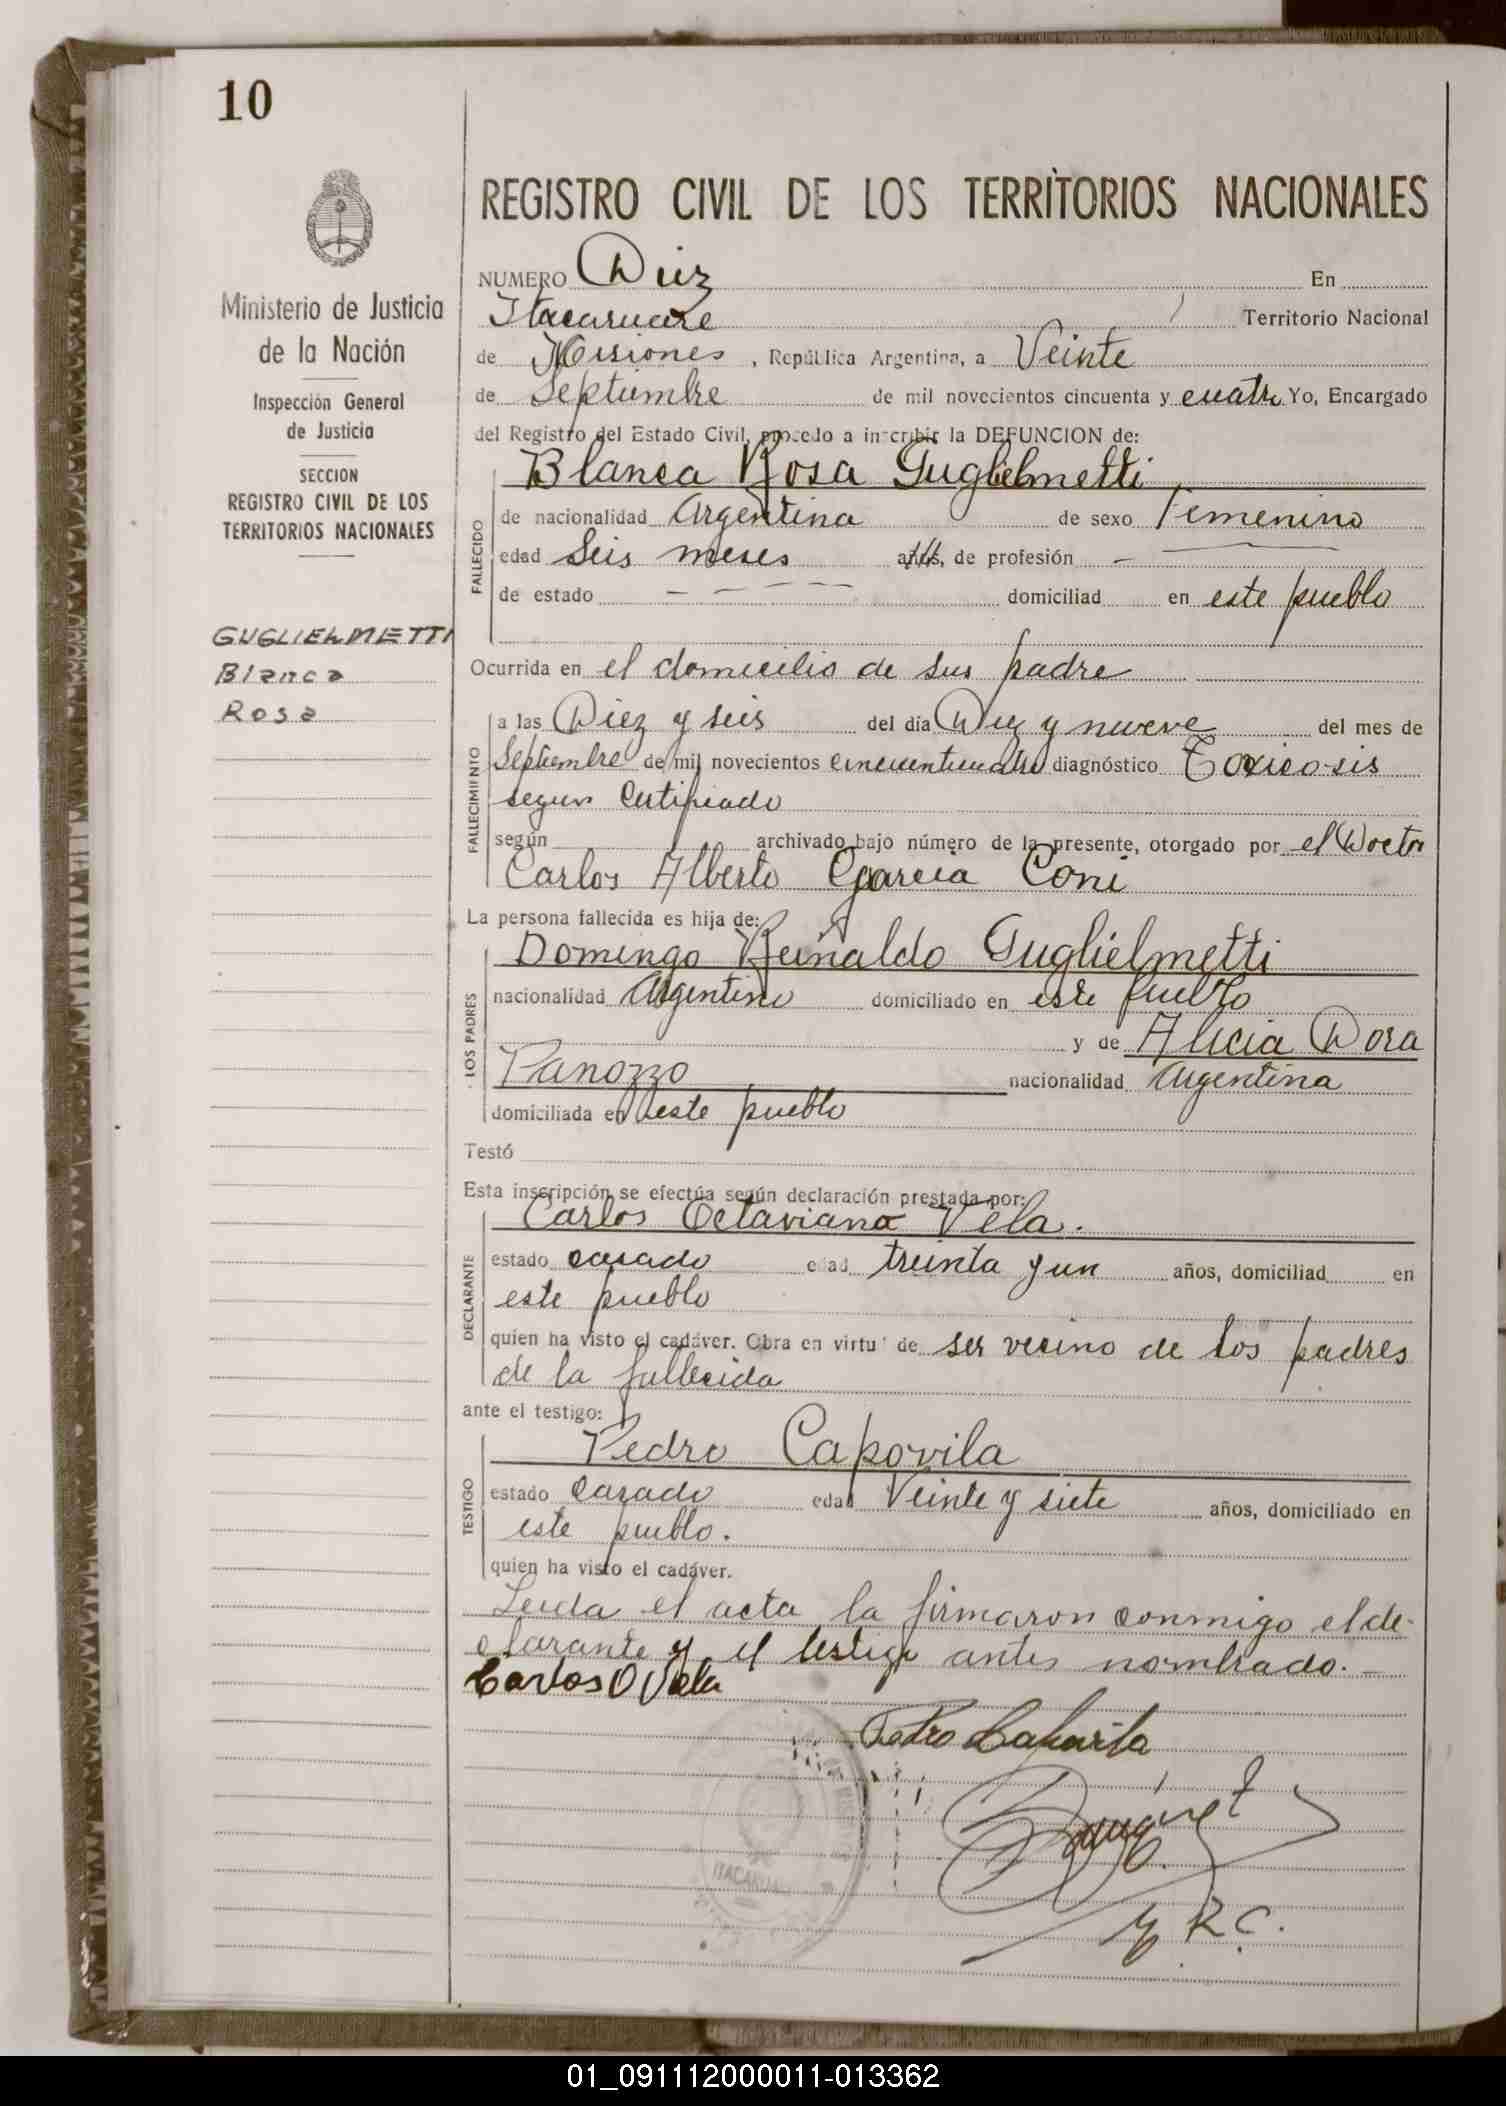 10
REGISTRO CIVIL DE LOS TERRITORIOS NACIONALES
Ministerio de Justicia
de la Nación
Inspección General
de Justicia
SECCION
REGISTRO CIVIL DE LOS
TERRITORIOS NACIONALES
GUGLIELMETTI
Blanca
Rosa
NUMERO Diez En
Itacaruare Territorio Nacional
de Misiones, República Argentina, a Veinte
de Septiembre de mil novecientos cincuenta y cuatro Yo, Encargado
del Registro del Estado Civil, procedo a inscribir la DEFUNCION de:
FALLECIDO
Blanca Rosa Guglielmetti
de nacionalidad Argentina de sexo Femenino
edad Seis meses años, de profesión —
de estado — — — — domiciliad en este pueblo
Ocurrida en el domicilio de sus padre
FALLECIMIENTO
a las Diez y seis del día Diez y nueve del mes de
Septiembre de mil novecientos cincuenticuatro diagnóstico Toxicosis
segun Certificado
según archivado bajo número de la presente, otorgado por el Doctor
Carlos Alberto Garcia Coni
La persona fallecida es hija de:
LOS PADRES
Domingo Reinaldo Guglielmetti
nacionalidad Argentino domiciliado en este pueblo
y de Alicia Dora
Panozzo nacionalidad Argentina
domiciliada en este pueblo
Testó
Esta inscripción se efectúa según declaración prestada por:
DECLARANTE
Carlos Octaviano Vela.
estado casado edad treinta y un años, domiciliad en
este pueblo
quien ha visto el cadáver. Obra en virtud de ser vecino de los padres
de la fallecida
ante el testigo:
TESTIGO
Pedro Capovila
estado Casado edad Veinte y siete años, domiciliado en
este pueblo.
quien ha visto el cadáver.
Leida el acta la firmaron conmigo el de-
clarante y el testigo antes nombrado. —
Carlos O Vela
Pedro Capovila
ITACARUARE
R. C.
01_091112000011-013362